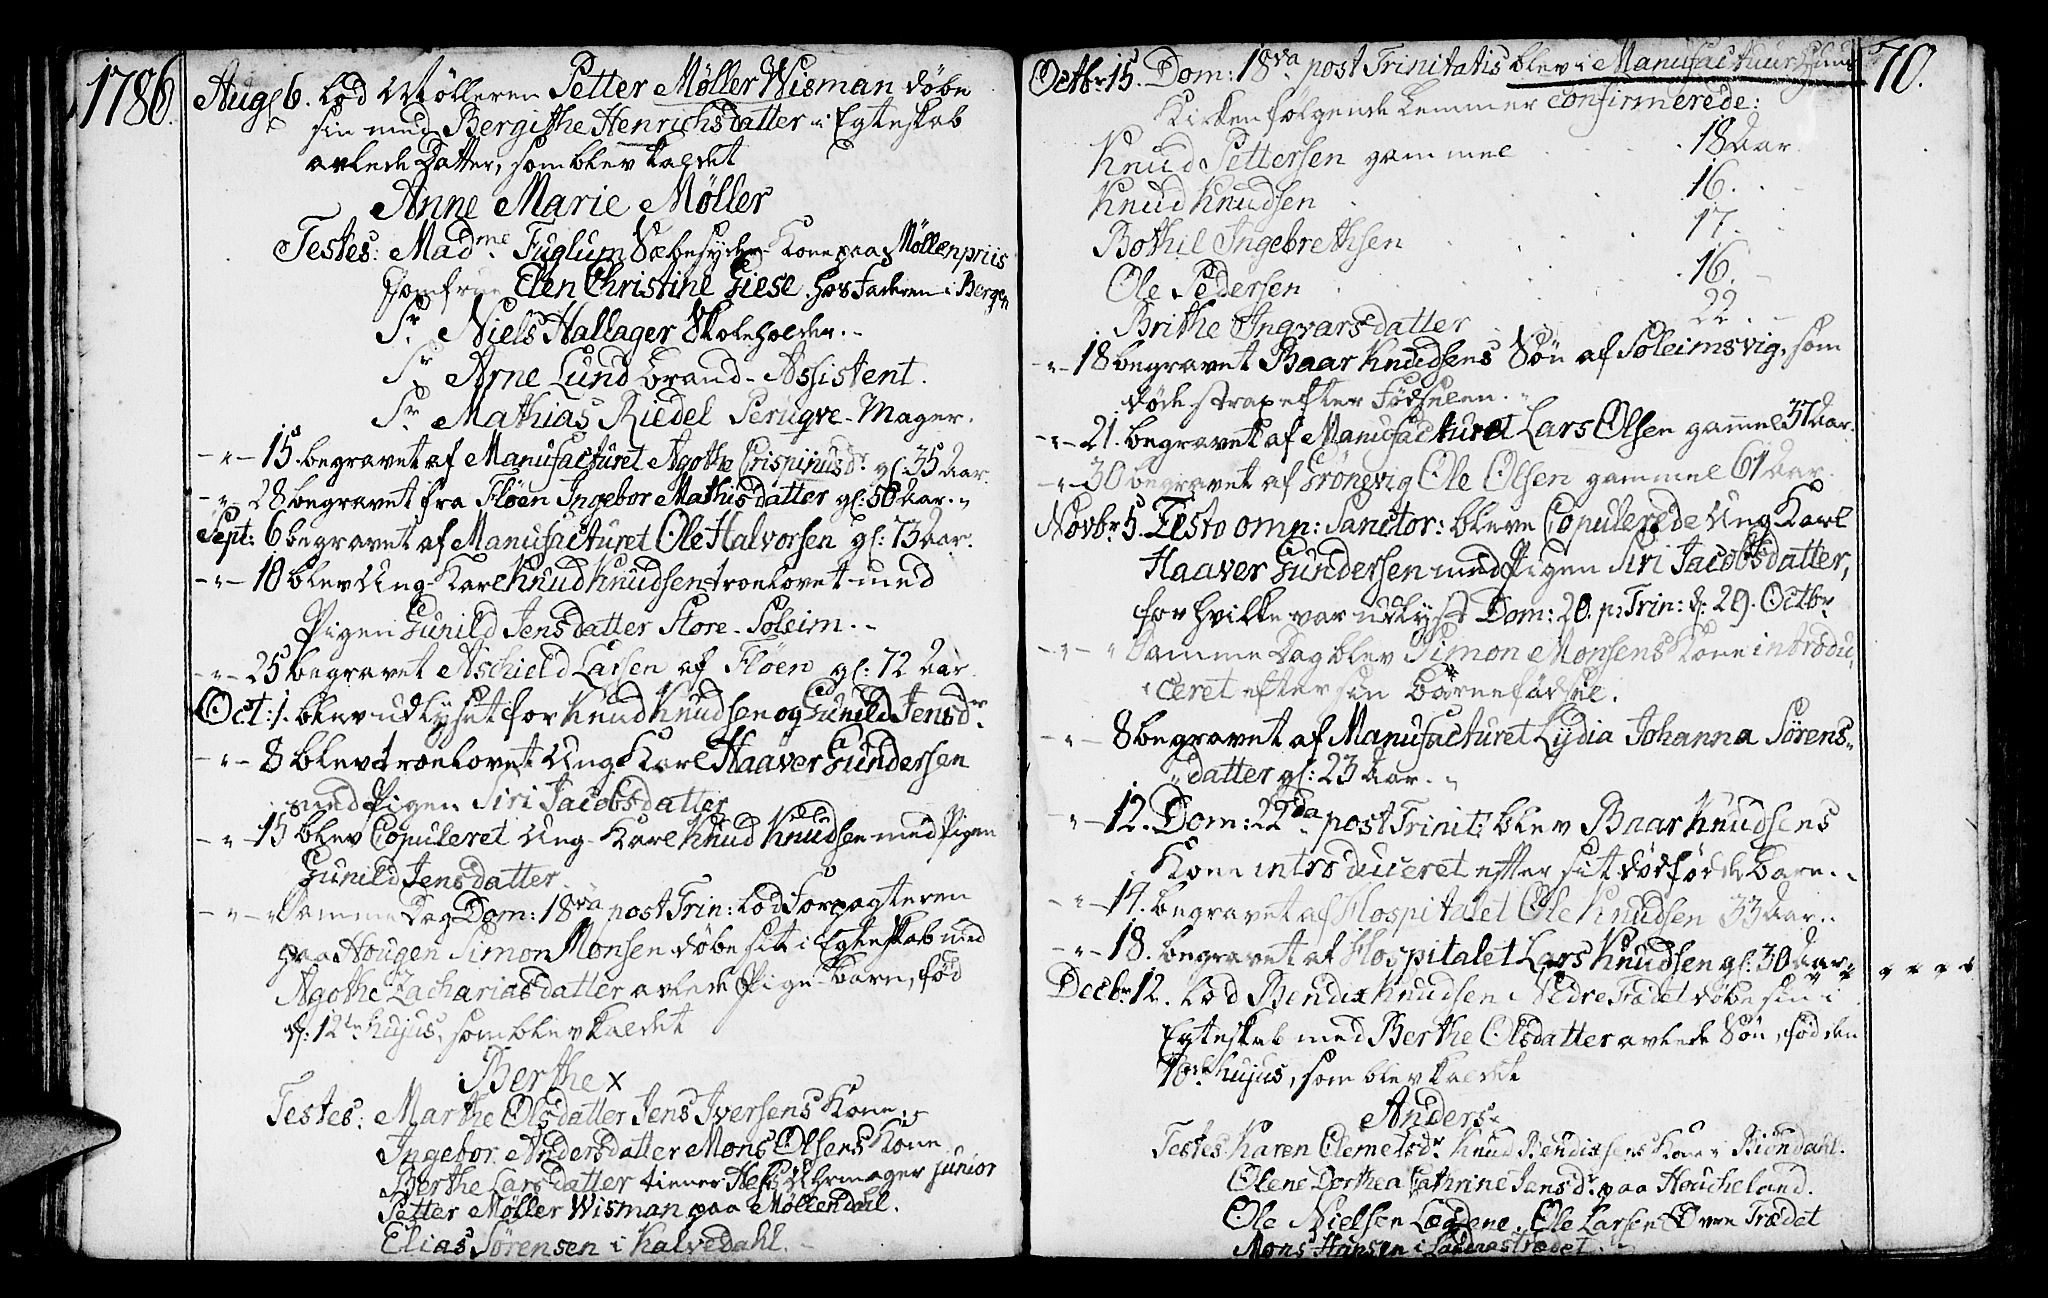 1786.
Aug. 6. Lod Mølleren Petter Møller Wisman døbe
sin med Bergithe Henrichsdatter i Egteskab
avlede Datter, som blev kaldet
Anne Marie Møller
Testes: Madme. Fuglum Sæbesyder-Kone paa Møllenpriis
Jomfrue Elen Christine Giese hos Faderen i Bergen
Sr. Niels Hallager Skoleholder.
Sr. Arne Lund Brand-Assistent.
Sr. Mathias Riedel Peruqve-Mager.
-"- 15. begravet af Manufacturet Agothe Crispinusdr gl: 35 Aar.
-"- 28 begravet fra Fløen Ingebor Mathisdatter gl: 50 Aar.
Sept: 6 begravet af Manufacturet Ole Halvorsen gl: 73 Aar.
-"- 10 blev Ung-Karl Knud Knudsen troelovet med
Pigen Gunild Jensdatter Store-Soleim.
-"- 25 begravet Aschield Larsen af Fløen gl: 72 Aar
Oct: 1. blev udlyset for Knud Knudsen og Gunild Jensdr.
-"- 8 blev troelovet Ung Karl Haaver Gundersen
med Pigen Siri Jacobsdatter
-"- 15 blev Copuleret Ung-Karl Knud Knudsen med Pigen
Gunild Jensdatter.
-"- Samme Dag Dom: 18va post Trin: lod Forpagteren
paa Hougen Simon Monsen døbe sit i Egteskab med
Agothe Zachariasdatter avlede Pige-Barn, fød
d: 12te hujus, som blev kaldet
Berthe x
Testes: Marthe Olsdatter Jens Iversens Kone
Ingebor Andersdatter Mons Olsens Kone
Berthe Larsdatter tiener Hess Uhrmager junior
Petter Møller Wisman paa Møllendal.
Elias Sørensen i Kalvedahl.
70.
Octbr 15. Dom: 18va post Trinitatis blev i Manufactuur Huus
Kirken følgende Lemmer confirmerede:
Knud Pettersen gammel 18 Aar.
Knud Knudsen 16.
Bothil Ingebrethsen 17.
Ole Pedersen 16.
Brithe Ingvarsdatter 22.
-"- 18 begravet Baar Knudsens Søn af Soleimsvig, som
døde strax efter Fødselen.
-"- 21. begravet af Manufacturet Lars Olsen gammel 37 Aar.
-"- 30 begravet af Grønevig Ole Olsen gammel 61 Aar.
Novbr 5. Festo omn: Sanctor: bleve Copulerede Ung Karl
Haaver Gundersen med Pigen Siri Jacobsdatter,
for hvilke var udlyst Dom: 20. p: Trin: d: 29. Octbr
-"- " Samme Dag blev Simon Monsens Kone introdu-
ceret efter sin Barnefødsel.
-"- 8 begravet af Manufacturet Lydia Johanna Sørens-
datter gl: 23 Aar.
-"- 12. Dom: 22da post Trinit: blev Baar Knudsens
Kone introduceret efter sit dødfødde Barn.
-"- 17. begravet af Hospitalet Ole Knudsen 33 Aar.
-"- 18. begravet af Hospitalet Lars Knudsen gl: 30 Aar
Decbr 12. Lod Bendix Knudsen Nedre Trædet døbe sin i
Egteskab med Berthe Olsdatter avlede Søn, fød den
10de hujus, som blev kaldet
Anders.
Testes Karen Clemetsdr Knud Bendixsens Kone i
Olene Dorthea Cathrine Jensdr paa Houcheland.
Ole Nielsen Ole Larsen Øvre Trædet
Mons Hansen i